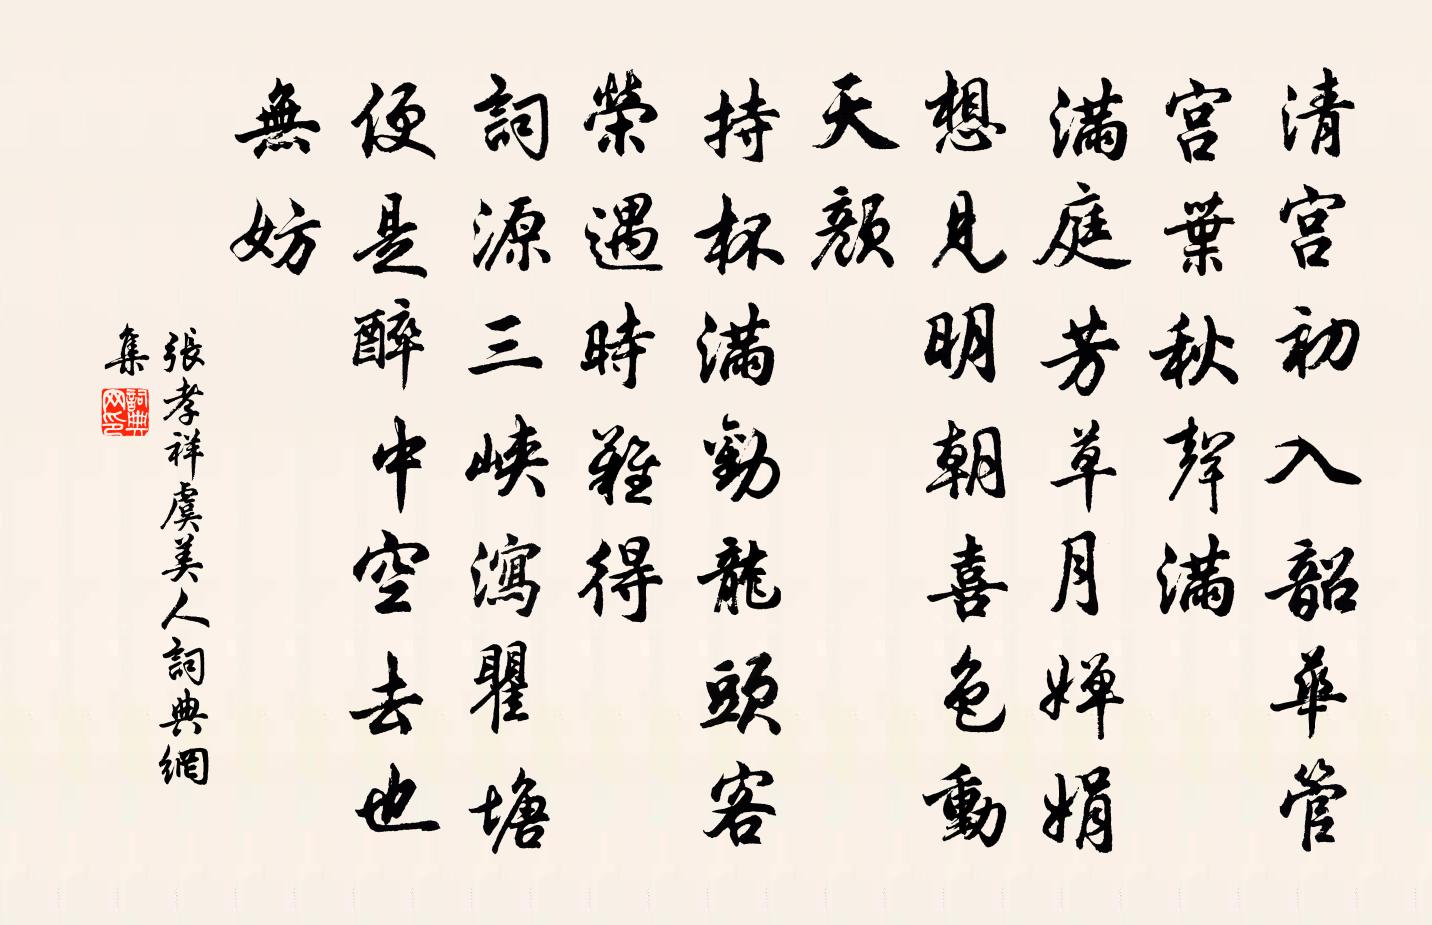 清宮初入韶華管
宮葉秋聲滿
滿庭芳草月嬋娟
想見明朝喜色動
天顏
持杯滿勸龍頭客
榮遇時難得
詞源三峽瀉瞿塘
便是醉中空去也
無妨
張孝祥虞美人詞典網
集
詞典网印